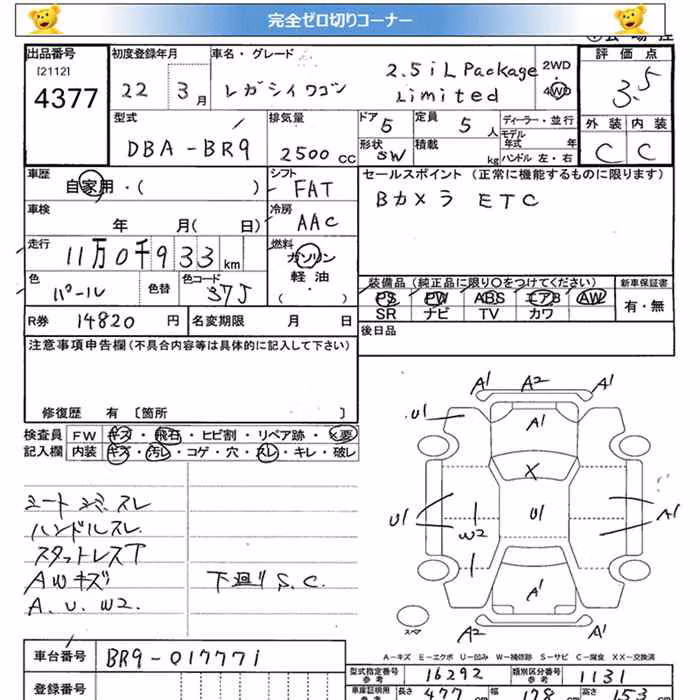 完全ゼロ切りコーナー
出品番号
[2112]
4377
初度登録年月
22 3月
車名・グレード
レガシィワゴン
2.5i L Package
Limited
2WD
4WD
評価点
3.5
外装 内装
C C
型式
DBA-BR9
排気量
2500 CC
ドア 5
形状 SW
定員 5人
積載 kg
ディーラー・並行
モデル年式 年
ハンドル 左・右
車歴
自家用・( )
シフト
FAT
車検
年 月( 日)
冷房
AAC
走行
11万0千933km
燃料
ガソリン
軽油
( ・ )
色
パール
色替
色コード
37J
セールスポイント(正常に機能するものに限ります)
Bカメラ ETC
装備品(純正品に限り○をつけてください)
PS PW ABS エアB AW
SR ナビ TV カワ
新車保証書
有・無
R券 14820円
名変期限 月 日
後日品
注意事項申告欄(不具合内容等は具体的に記入して下さい)
修復歴 有〔箇所 〕
検査員 FW キズ・飛石・ヒビ割・リペア跡・X要
記入欄 内装 キズ・汚レ・コゲ・穴・スレ・キレ・破レ
シートシミスレ
ハンドルスレ
スタットレスT
AWキズ
A.U.W2.
下廻りS.C.
A1 A2 A1
U1 A1
X
U1 U1 A1
W2
A1
A2 A1
スペア
A-キズ E-エクボ U-凹み W-補修跡 S-サビ C-腐食 X X-交換済
車台番号 BR9-017771
登録番号
型式指定番号 参考 16292
類別区分番号 参考 1131
車庫証明用 参考 長さ 477cm 幅 178cm 高さ 153cm